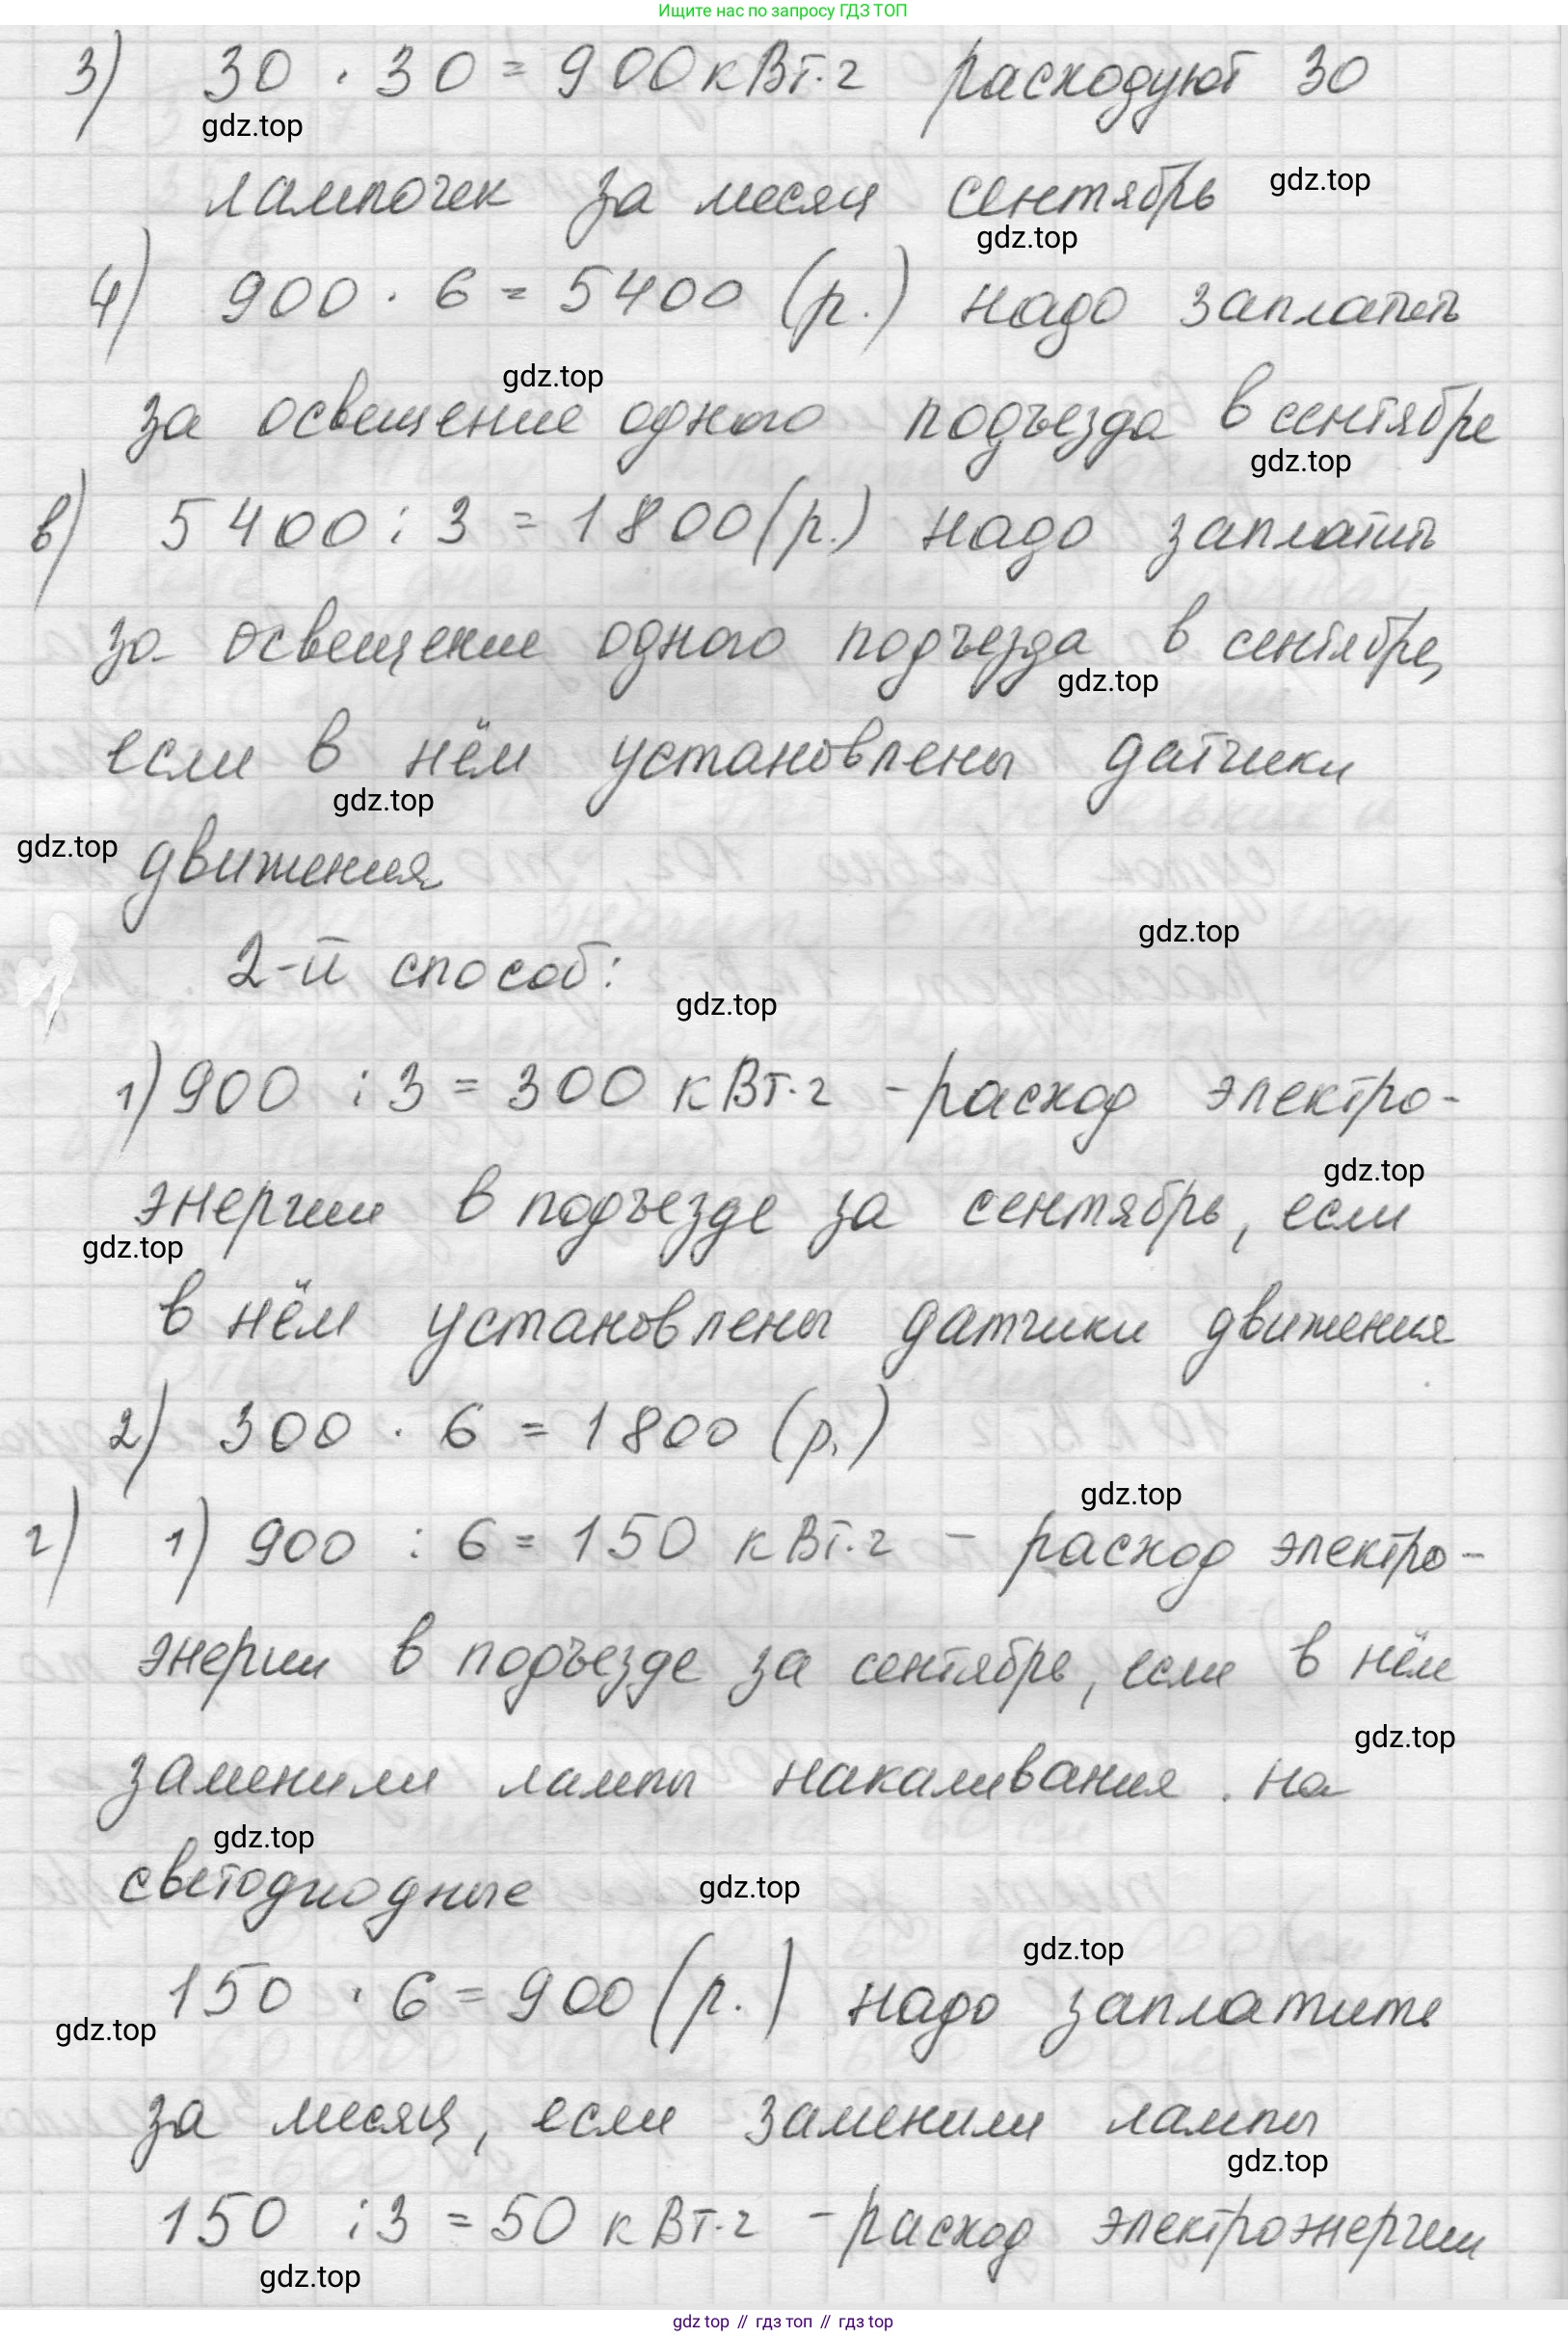 Ищите нас по запросу ГДЗ ТОП
3) 30 · 30 = 900 кВт·г расходуют 30
gdz.top
лампочек за месяц сентябрь gdz.top
gdz.top
4) 900 · 6 = 5400 (р.) надо заплатить
gdz.top
за освещение одного подъезда в сентябре
gdz.top
в) 5400 : 3 = 1800 (р.) надо заплатить
за освещение одного подъезда в сентябре,
gdz.top
если в нём установлены датчики
gdz.top
gdz.top движения
gdz.top
2-й способ:
gdz.top
1) 900 : 3 = 300 кВт·г - расход электро-
gdz.top
энергии в подъезде за сентябрь, если
gdz.top
в нём установлены датчики движения
2) 300 · 6 = 1800 (р.)
gdz.top
г) 1) 900 : 6 = 150 кВт·г - расход электро-
энергии в подъезде за сентябрь, если в нём
gdz.top
заменили лампы накаливания на
gdz.top
светодиодные gdz.top
gdz.top
150 · 6 = 900 (р.) надо заплатить
gdz.top
за месяц, если заменили лампы
gdz.top
150 : 3 = 50 кВт·г - расход электроэнергии
gdz.top
gdz top // гдз топ // гдз top